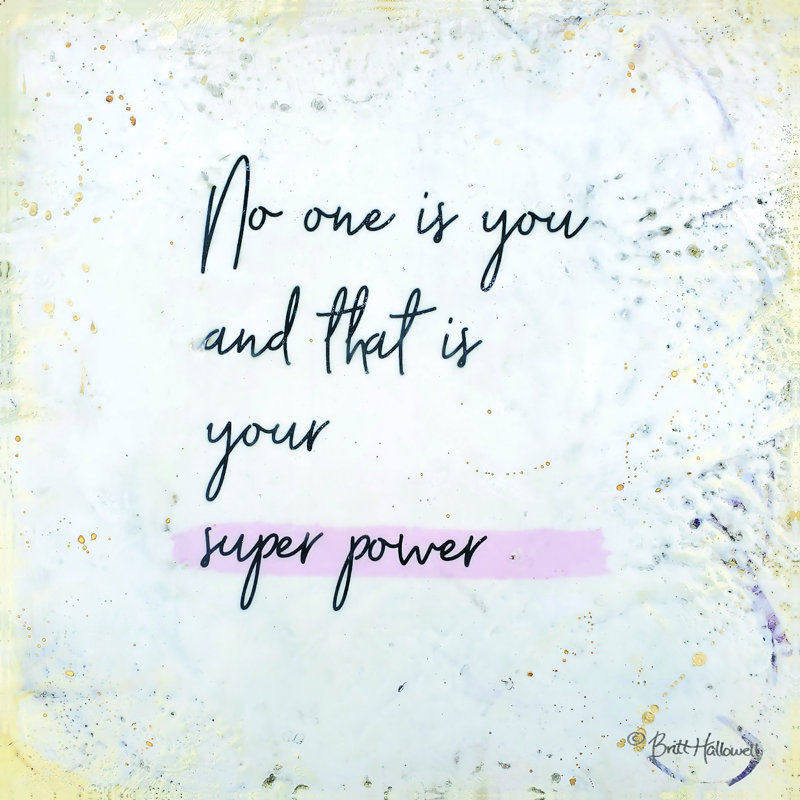 No one is you
and that is
your
super power
© Britt Hallowell